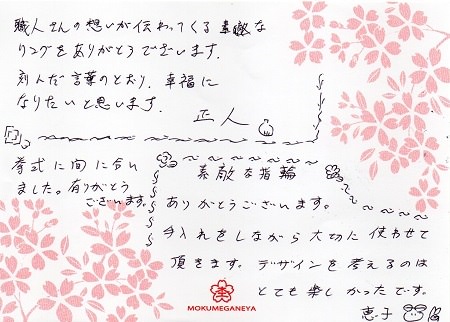 職人さんの想いが伝わってくる素敵な
リングをありがとうございます。
刻んだ言葉のとおり、幸福に
なりたいと思います。
正人
挙式に間に合い
ました。有りがとう
ございます。
素敵な指輪
ありがとうございます。
手入れをしながら大切に使わせて
頂きます。デザインを考えるのは
とても楽しかったです。
恵子
MOKUMEGANEYA